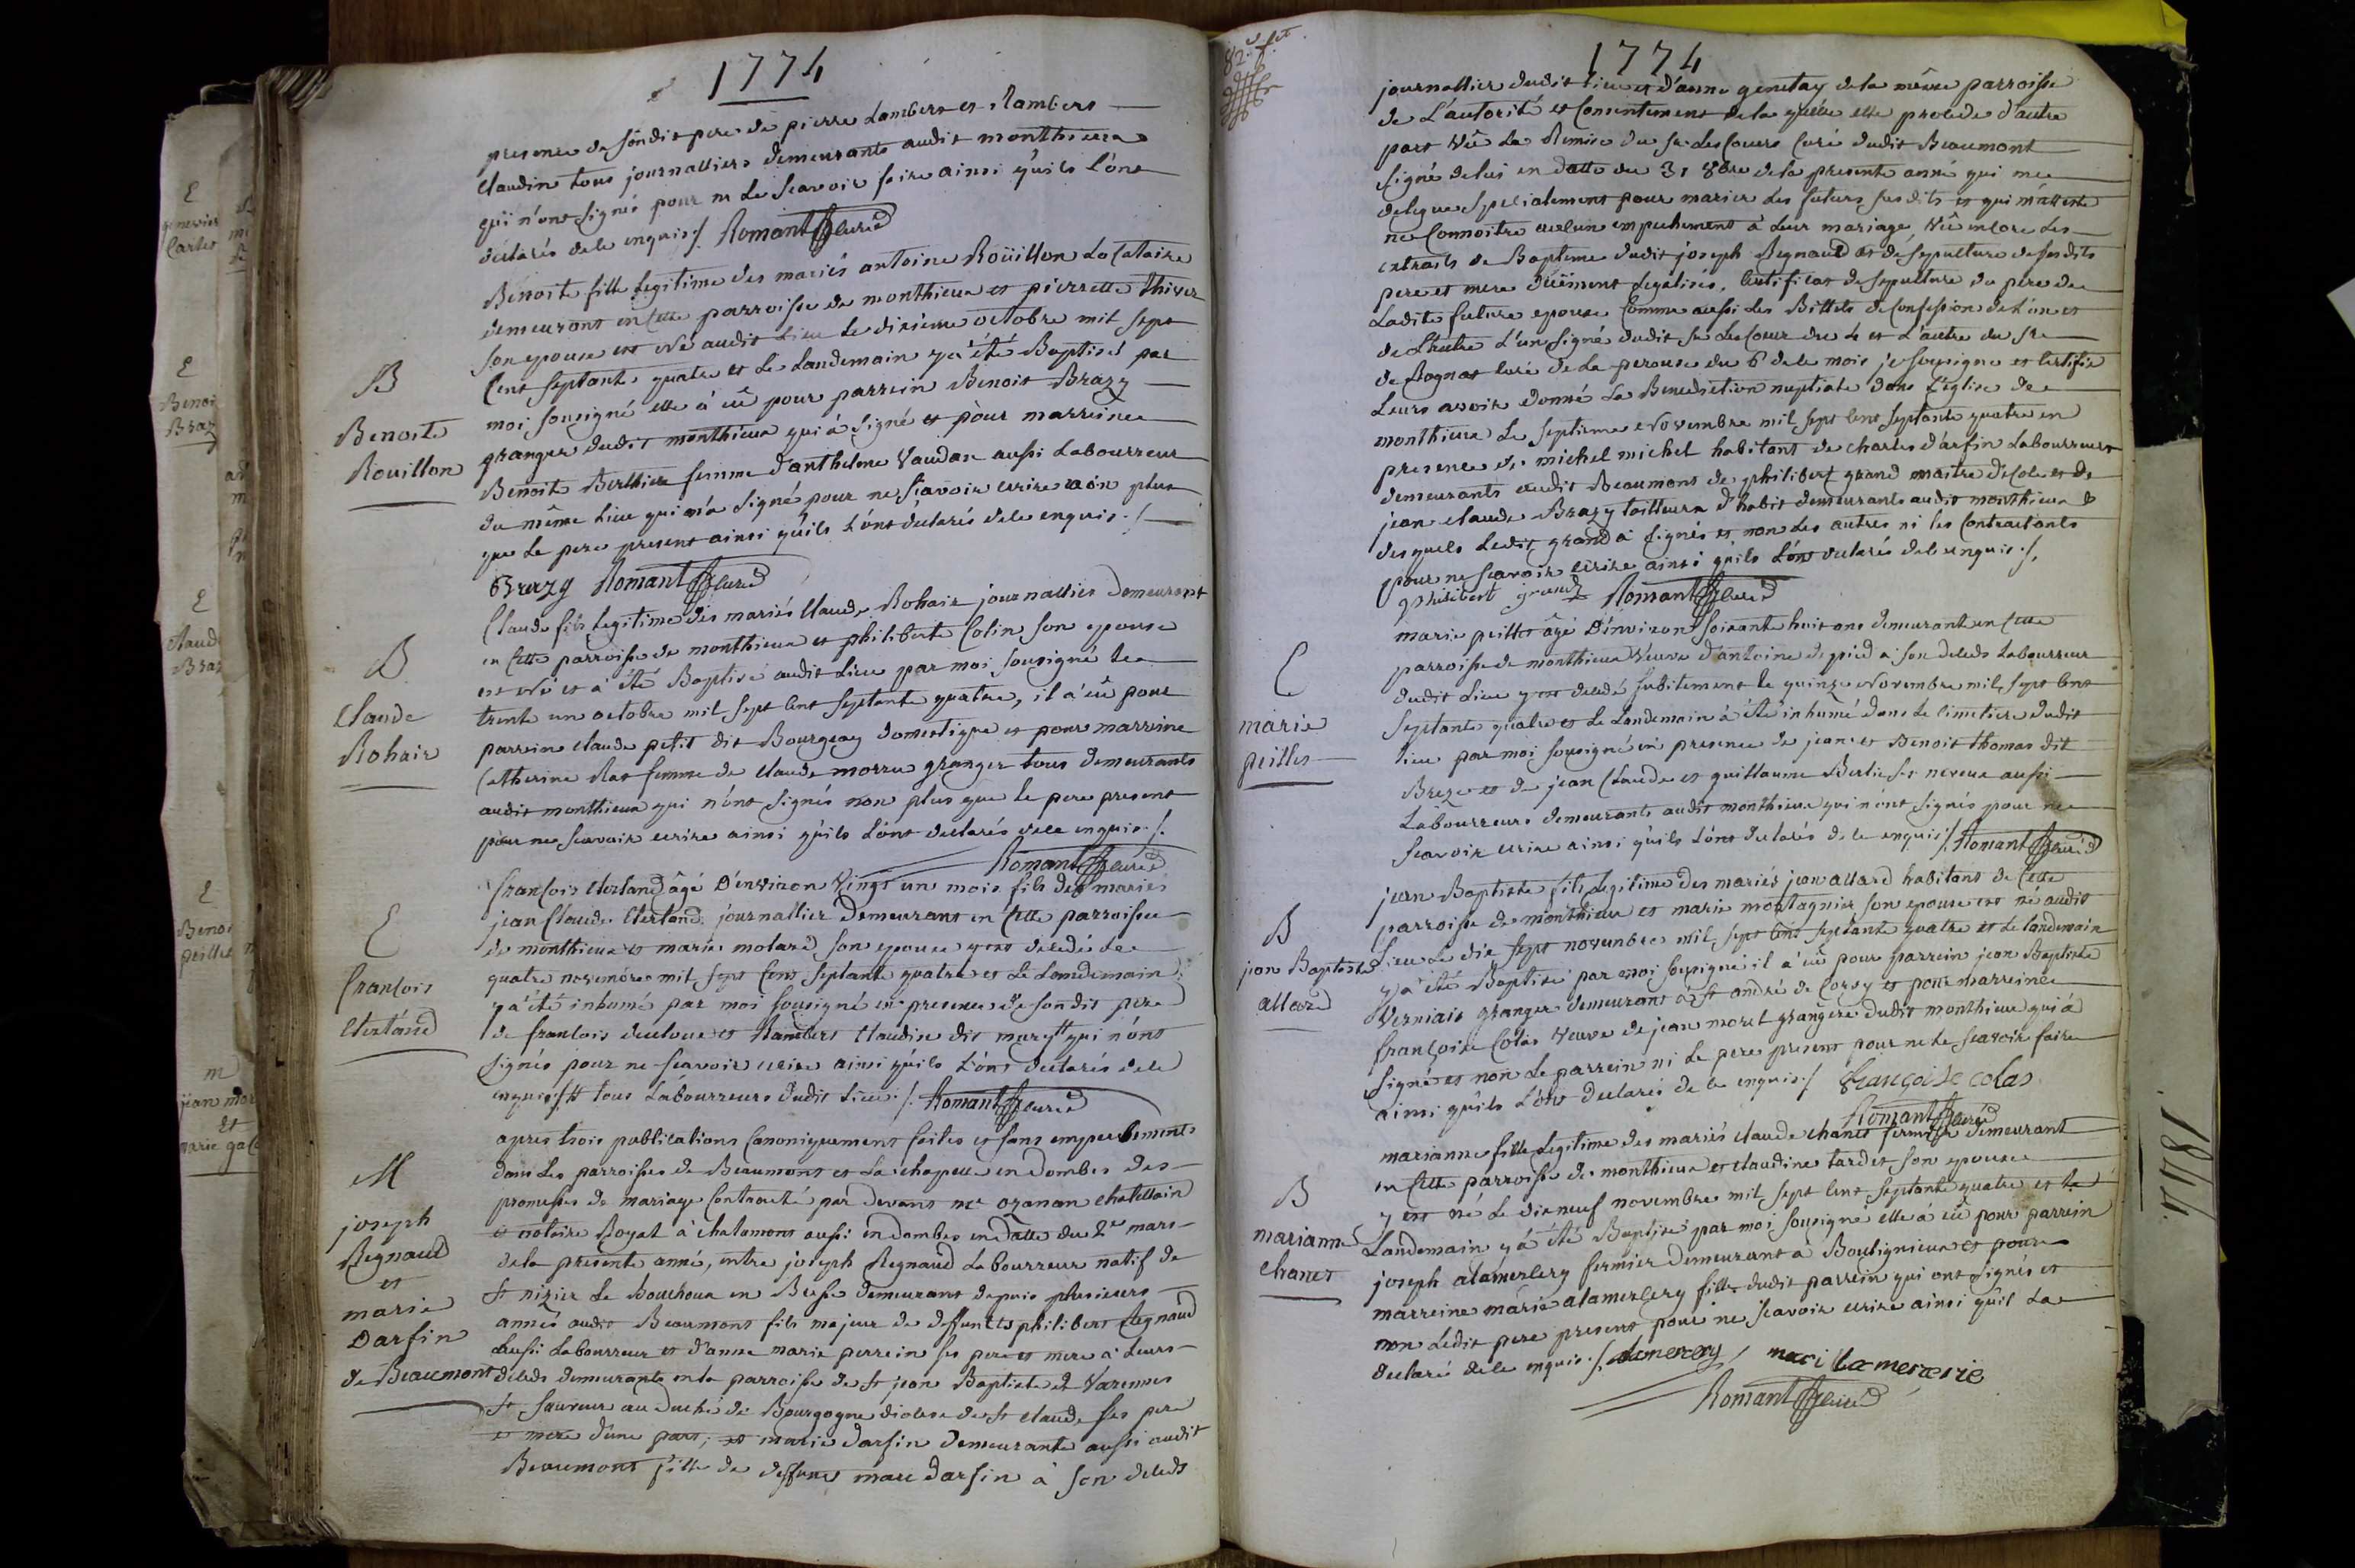 1774
presence de sondit pere de pierre Lambert et Lambert
Claudin tous journalliers demeurants audit monthieux
qui n'ont signés pour ne le scavoir faire ainsi qu'ils l'ont
déclarés de ce enquis ./. Romant Curé
B
Benoite
Rouillon
Benoite fille legitime des mariés antoine Roüillon Locataire
demeurant en cette parroisse de monthieux et pierrette thiver
son epouse est né audit Lieu le dixieme octobre mil sept
Cent septante quatre et le Landemain y a été Baptisé par
moi sousigné elle a eû pour parrein Benoit Brazy
granger dudit monthieux qui à signé et pour marreine
Benoite Berthier femme d'anthelme Vaudan aussi Labourreur
du même Lieu qui n'a signé pour ne scavoir ecrire non plus
que le pere present ainsi qu'ils l'ont déclarés de ce enquis ./.
Brazy Romant Curé
B
Claude
Rohair
Claude fils legitime des mariés Claude Rohair journallier demeurant
en cette parroisse de monthieux et philiberte Colin son epouse
est né et a été Baptisé audit Lieu par moi sousigné le
trente un octobre mil sept cent septante quatre, il a eû pour
parrein Claude petit dit Bourgeay domestique et pour marreine
Catherine Rat femme de Claude morru granger tous demeurants
audit monthieux qui n'ont signés non plus que le pere present
pour ne scavoir ecrire ainsi qu'ils l'ont déclarés de ce enquis ./.
Romant Curé
E
francois
Clerland
francois Clerland âgé d'environ vingt un mois fils des mariés
jean Claude Clerland journallier demeurant en cette parroisse
de monthieux et marie molard son epouse y est decedé le
quatre novembre mil sept cent septante quatre et le Landemain
y a été inhumé par moi sousigné en presence de sondit pere
de francois et Lambert Claudin dit qui n'ont
signés pour ne scavoir ecrire ainsi qu'ils l'ont déclarés de ce
enquis ./. # tous Labourreurs dudit Lieu ./. Romant Curé
M
joseph
Regnaud
et
marie
Darfin
de Beaumont
apres trois publications Canoniquement faites et sans empechements
dans les parroisses de Beaumont et La chapelle en dombes des
promesses de mariage Contracté par devant me ozanan chatellain
et notaire Royal à chalamont aussi en dombes en datte du 2e mars
de la presente anné, entre joseph Regnaud Labourreur natif de
st nizier le Bouchoux en Bresse demeurant depuis plusieurs
annés audit Beaumont fils majeur de deffunts philibert Regnaud
aussi Labourreur et d'anne marie perrein ses pere et mere a leurs
deceds demeurants en la parroisse de st jean Baptiste de Varennes
st sauveur au duché de Bourgogne diocese de st claude ses pere
et mere d'une part; et marie darfin demeurante aussi audit
Beaumont fille de deffunt marc darfin à son deceds
82e ft
1774
journallier dudit Lieu et d'anne genetay de la même parroisse
de L'autorité et Consentement de la quelle elle procede d'autre
part Vû La Remise du sr Curé dudit Beaumont
signé de lui en datte du 31 8bre de la presente anné qui me
delegue specialement pour marier les futurs susdits et qui m'atteste
ne Connoitre aucun empechement à leur mariage, Vû encore les
extraits de Baptéme dudit joseph Regnaud et de sepulture desesdits
pere et mere duëment legalisés, Certificat de sepulture du pere de
Ladite future epouse Comme aussi les Billets de Confession de L'un et
de L'autre L'un signé dudit sr du 4 et L'autre du sr
de Rognat Curé de La perouse du 6 de ce mois je sousigne et Certifie
Leurs avoir donné la Benediction nuptiale dans L'eglise de
monthieux le septieme Novembre mil sept cent septante quatre en
presence de michel michel habitant de charles d'arfin Labourreurs
demeurants audit Beaumont de philibert grand maitre d'ecole et de
jean claude Brazy tailleur d'habit demeurants audit monthieux
des quels Ledit grand à signés et non les autres ni les Contractants
pour ne scavoir ecrire ainsi qu'ils l'ont declarés de ce enquis ./.
philibert grand Romant Curé
E
marie
peilles
marie peilles âgé d'environ soixante huit ans demeurant en cette
parroisse de monthieux Veuve d'antoine depied a son deceds Labourreur
dudit Lieu y est decedé subitement le quinze Novembre mil sept cent
septante quatre et le Landemain à été inhumé dans le cimetiere dudit
Lieu par moi sousigné en presence de jean et Benoit thomas dit
Breze et de jean Claude et guillaume Berlie ses neveux aussi
Labourreurs demeurants audit monthieux qui n'ont signés pour ne
scavoir ecrire ainsi qu'ils l'ont declarés de ce enquis ./. Romant Curé
B
jean Baptiste
allard
jean Baptiste fils legitime des mariés jean allard habitant de Cette
parroisse de monthieux et marie montagnier son epouse est né audit
Lieu le dix sept novembre mil sept cent septante quatre et le landemain
y a été Baptisé par moi sousigné il a eû pour parrein jean Baptiste
Verniais granger demeurant à st andré de Corcy et pour marreine
françoise Colas veuve de jean moret grangere dudit monthieux qui à
signé et non le parrein ni le pere present pour ne le scavoir faire
ainsi qu'ils l'ont declarés de ce enquis ./. françoise colas
Romant Curé
B
marianne
Chanet
marianne fille legitime des mariés claude chanet fermier demeurant
en cette parroisse de monthieux et claudine tardet son epouse
y est né le dixneuf novembre mil sept cent septante quatre et le
Landemain y a été Baptisé par moi sousigné elle a eû pour parrein
joseph alamercery fermier demeurant à Bouligneux et pour
marreine marie alamercery fille dudit parrein qui ont signés et
non Ledit pere present pour ne scavoir ecrire ainsi qu'il l'a
declaré de ce enquis ./. alamercery mari lamercerie
Romant Curé